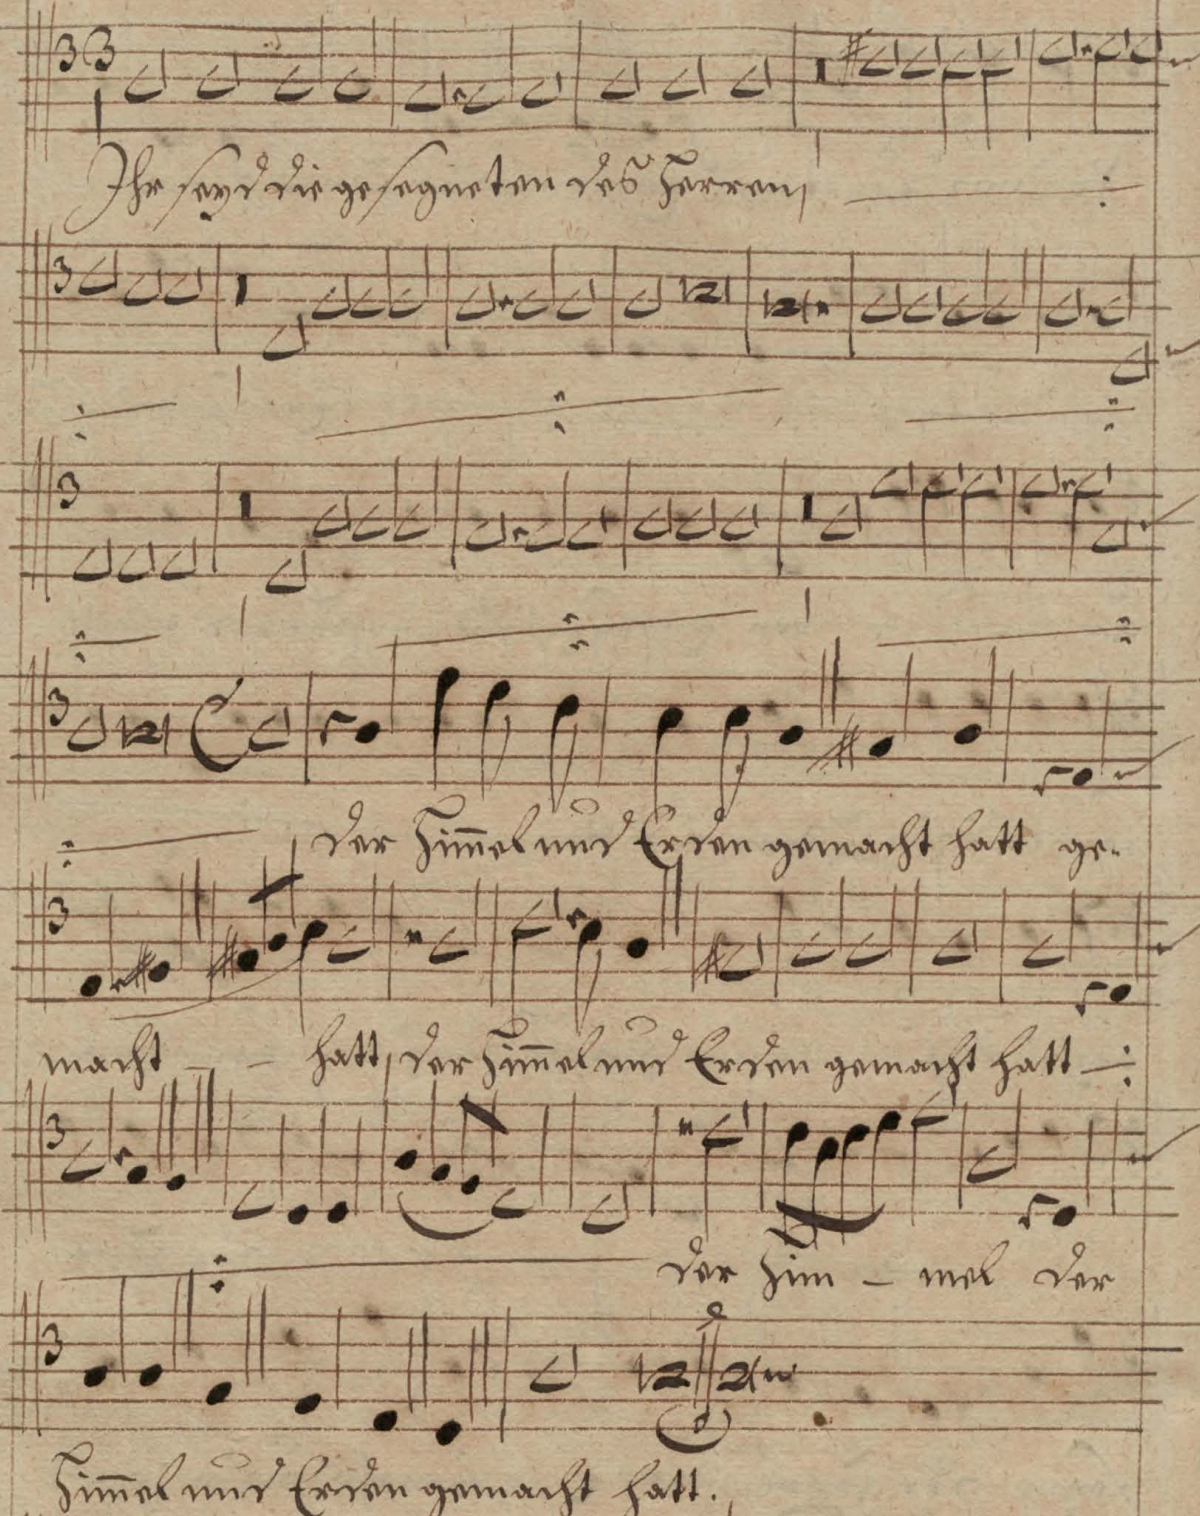 Ihr seyd die gesegneten des Herren,
der Him̅el und Erden gemacht hatt ge-
macht - - hatt, der Him̅el und Erden gemacht hatt
der Him - mel der
Him̅el und Erden gemacht hatt.